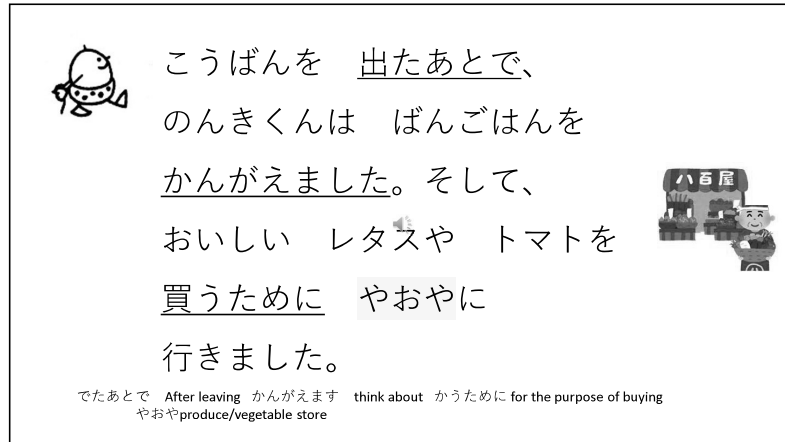 こうばんを　出たあとで、
のんきくんは　ばんごはんを
かんがえました。そして、
おいしい　レタスや　トマトを
買うために　やおやに
行きました。
八百屋
でたあとで　After leaving　かんがえます　think about　かうために for the purpose of buying
やおやproduce/vegetable store